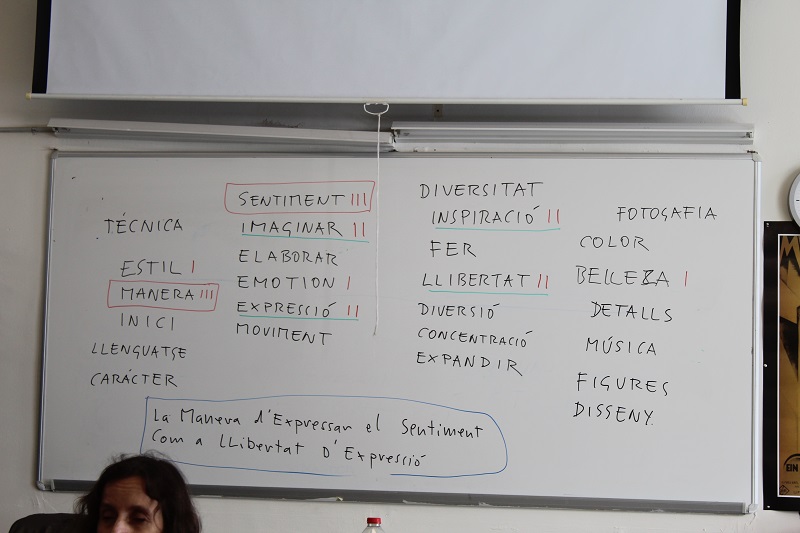 TÉCNICA
ESTIL I
MANERA III
INICI
LLENGUATGE
CARÀCTER
SENTIMENT III
IMAGINAR II
ELABORAR
EMOTION I
EXPRESSIÓ II
MOVIMENT
DIVERSITAT
INSPIRACIÓ II
FER
LLIBERTAT II
DIVERSIÓ
CONCENTRACIÓ
EXPANDIR
FOTOGAFIA
COLOR
BELLEZA I
DETALLS
MÚSICA
FIGURES
DISSENY.
La Manera d'Expressar el Sentiment
Com a LLibertat D'Expressió
EIN